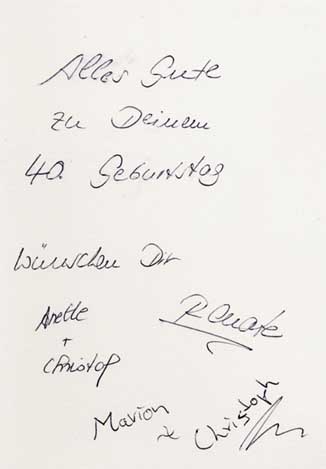 Alles Gute
zu Deinem
40. Geburtstag
wünschen Dir
Anette
+
Christof
Renate
Marion
&
Christoph